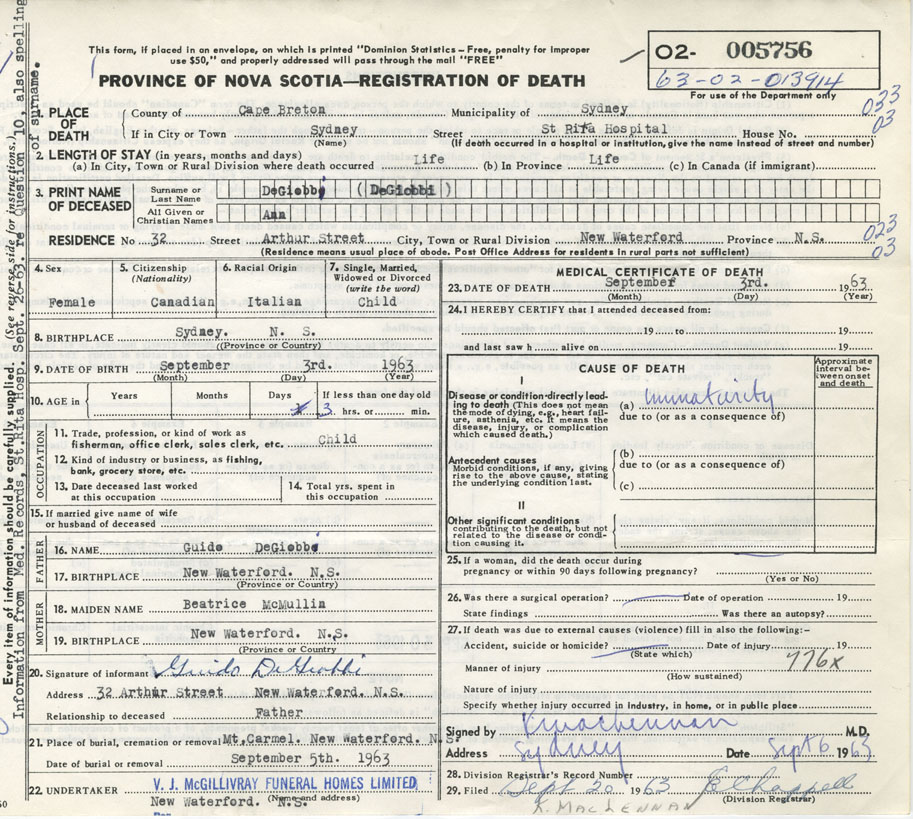 This form, if placed in an envelope, on which is printed "Dominion Statistics – Free, penalty for improper
use $50," and properly addressed will pass through the mail "FREE"
PROVINCE OF NOVA SCOTIA—REGISTRATION OF DEATH
02- 005756
63-02-013914
For use of the Department only
033
03
1. PLACE OF DEATH
County of Cape Breton Municipality of Sydney
If in City or Town Sydney Street St Rita Hospital House No.
(Name) (If death occurred in a hospital or institution, give the name instead of street and number)
2. LENGTH OF STAY (in years, months and days)
(a) In City, Town or Rural Division where death occurred Life (b) In Province Life (c) In Canada (if immigrant)
3. PRINT NAME OF DECEASED
Surname or Last Name DeGiobbi (DeGiobbi)
All Given or Christian Names Ann
RESIDENCE No 32 Street Arthur Street City, Town or Rural Division New Waterford Province N.S.
(Residence means usual place of abode. Post Office Address for residents in rural parts not sufficient)
023
03
4. Sex
Female
5. Citizenship (Nationality)
Canadian
6. Racial Origin
Italian
7. Single, Married, Widowed or Divorced (write the word)
Child
8. BIRTHPLACE Sydney. N. S.
(Province or Country)
9. DATE OF BIRTH September 3rd. 1963
(Month) (Day) (Year)
10. AGE in Years Months Days If less than one day old
3 hrs. or min.
OCCUPATION
11. Trade, profession, or kind of work as
fisherman, office clerk, sales clerk, etc. Child
12. Kind of industry or business, as fishing,
bank, grocery store, etc.
13. Date deceased last worked
at this occupation
14. Total yrs. spent in
this occupation
15. If married give name of wife
or husband of deceased
FATHER
16. NAME Guido DeGiobbi
17. BIRTHPLACE New Waterford. N.S.
(Province or Country)
MOTHER
18. MAIDEN NAME Beatrice McMullin
19. BIRTHPLACE New Waterford. N.S.
(Province or Country)
20. Signature of informant Guido DeGiobbi
Address 32 Arthur Street New Waterford. N.S.
Relationship to deceased Father
21. Place of burial, cremation or removal Mt. Carmel. New Waterford. N.S.
Date of burial or removal September 5th. 1963
22. UNDERTAKER V. J. McGILLIVRAY FUNERAL HOMES LIMITED
(Name and address)
New Waterford. N.S.
MEDICAL CERTIFICATE OF DEATH
23. DATE OF DEATH September 3rd. 1963
(Month) (Day) (Year)
24. I HEREBY CERTIFY that I attended deceased from:
19 to 19
and last saw h alive on 19
CAUSE OF DEATH
Approximate interval between onset and death
I
Disease or condition directly leading to death (This does not mean
the mode of dying, e.g., heart failure, asthenia, etc. It means the
disease, injury, or complication
which caused death.)
(a) Immaturity
due to (or as a consequence of)
Antecedent causes
Morbid conditions, if any, giving
rise to the above cause, stating
the underlying condition last.
(b)
due to (or as a consequence of)
(c)
II
Other significant conditions
contributing to the death, but not
related to the disease or condition causing it.
25. If a woman, did the death occur during
pregnancy or within 90 days following pregnancy?
(Yes or No)
26. Was there a surgical operation? Date of operation 19
State findings Was there an autopsy?
27. If death was due to external causes (violence) fill in also the following:-
Accident, suicide or homicide? Date of injury 19
(State which)
776x
Manner of injury
(How sustained)
Nature of injury
Specify whether injury occurred in industry, in home, or in public place
Signed by K MacLennan M.D.
Address Sydney Date Sept 6 1963
28. Division Registrar's Record Number
29. Filed Sept 20 1963 Chappell
(Division Registrar)
K. MACLENNAN
Every item of information should be carefully supplied. (See reverse side for instructions.)
Information from Med. Records, St. Rita Hosp. Sept. 25-63. re Question 10, also spelling
of surname.